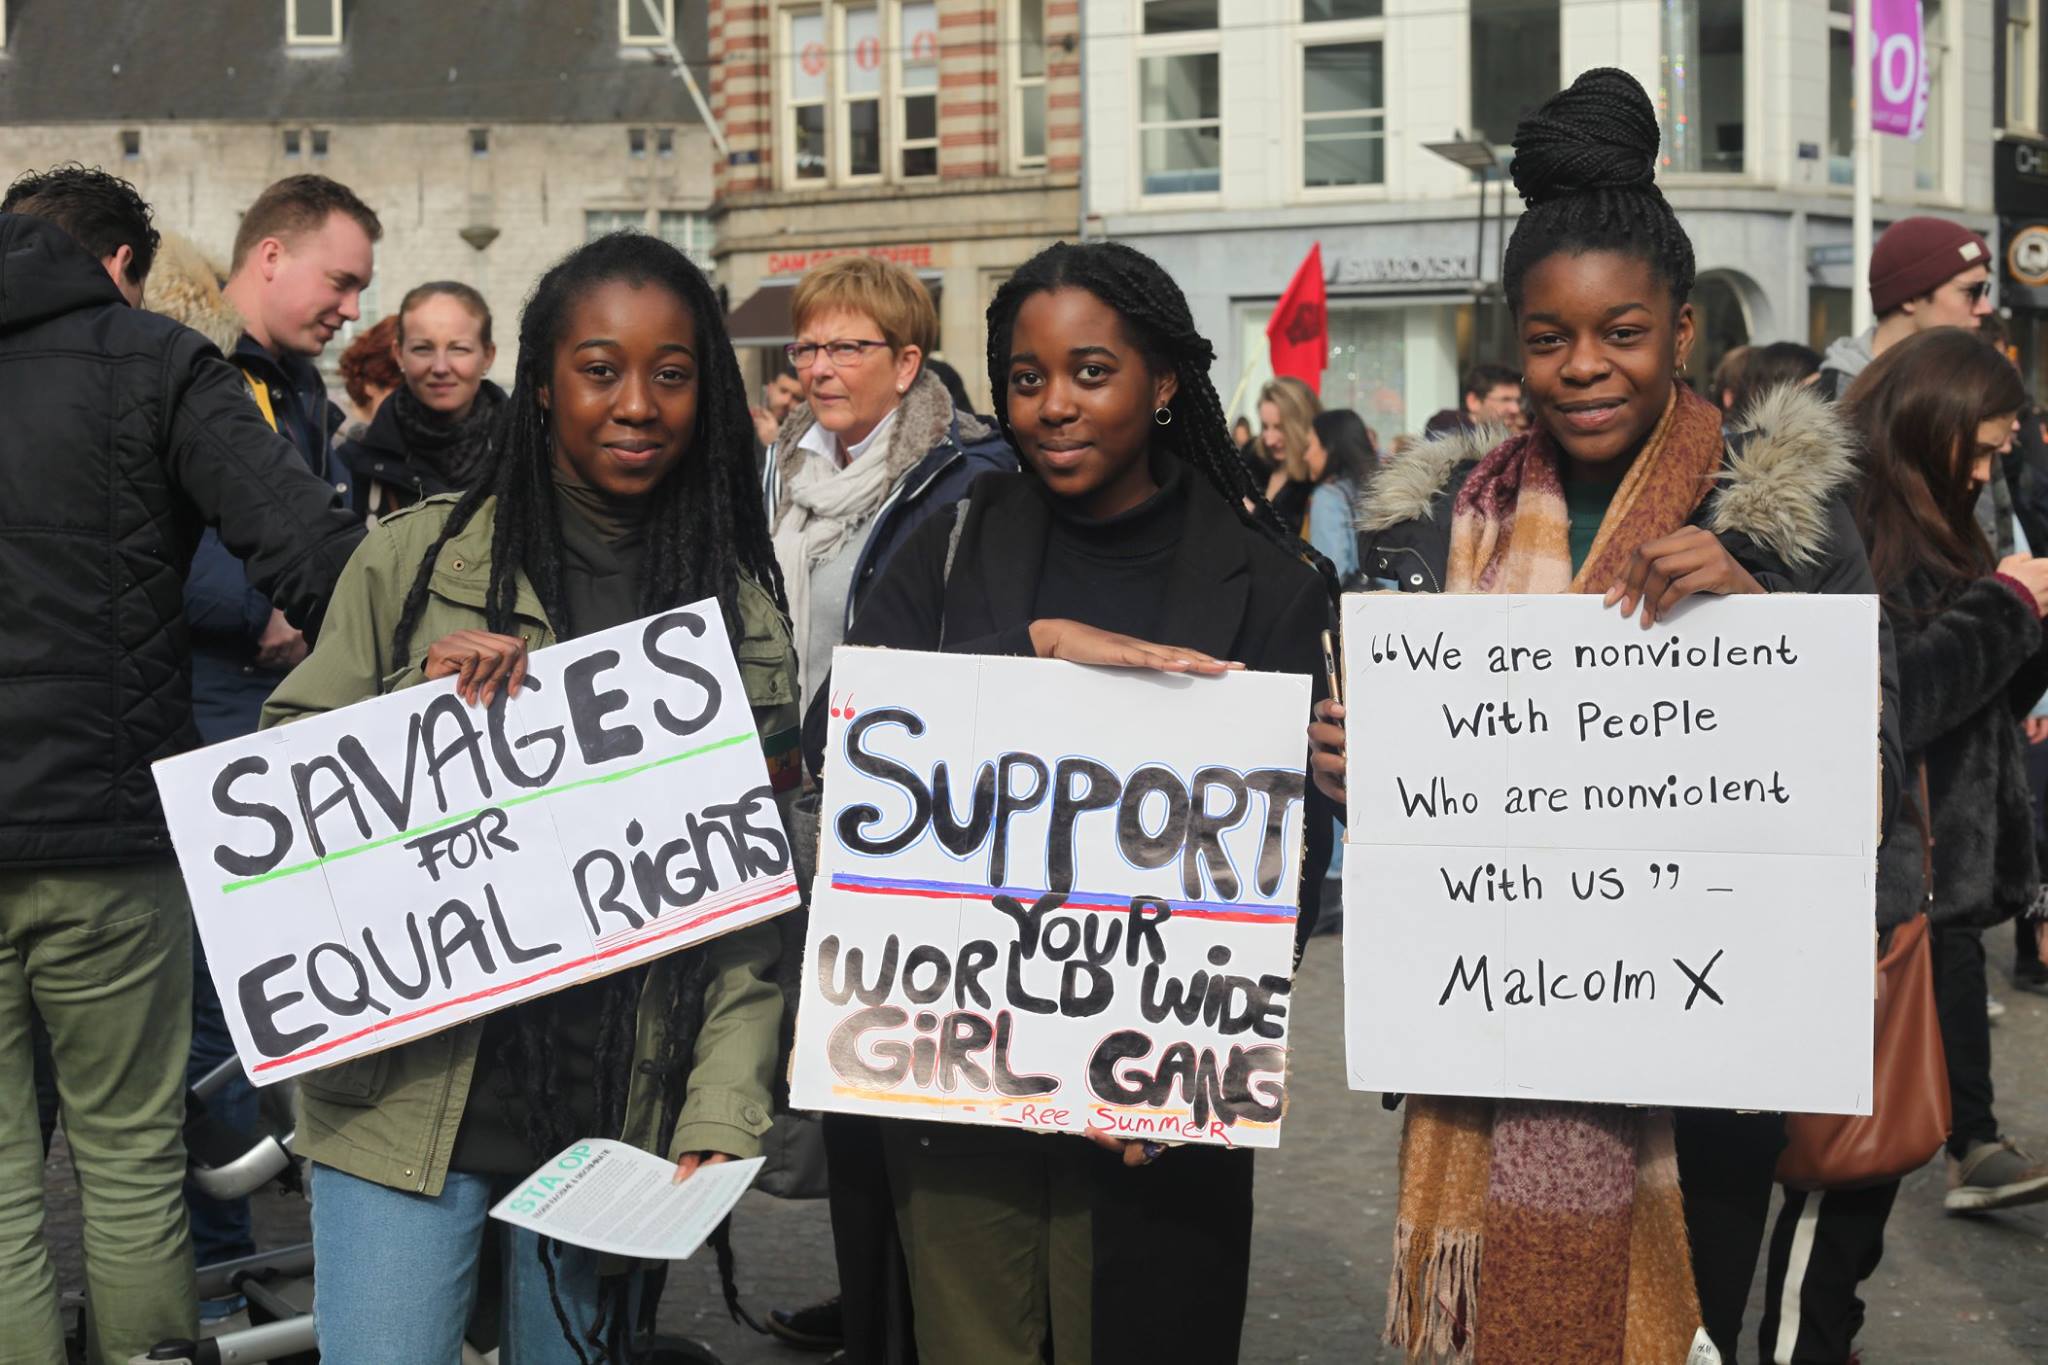 SAVAGES
FOR
EQUAL RIGHTS
“SUPPORT
YOUR
WORLD WIDE
GIRL GANG
- Cree Summer
“We are nonviolent
With PeoPle
Who are nonviolent
With us ” –
Malcolm X
STA OP
SWAROVSKI